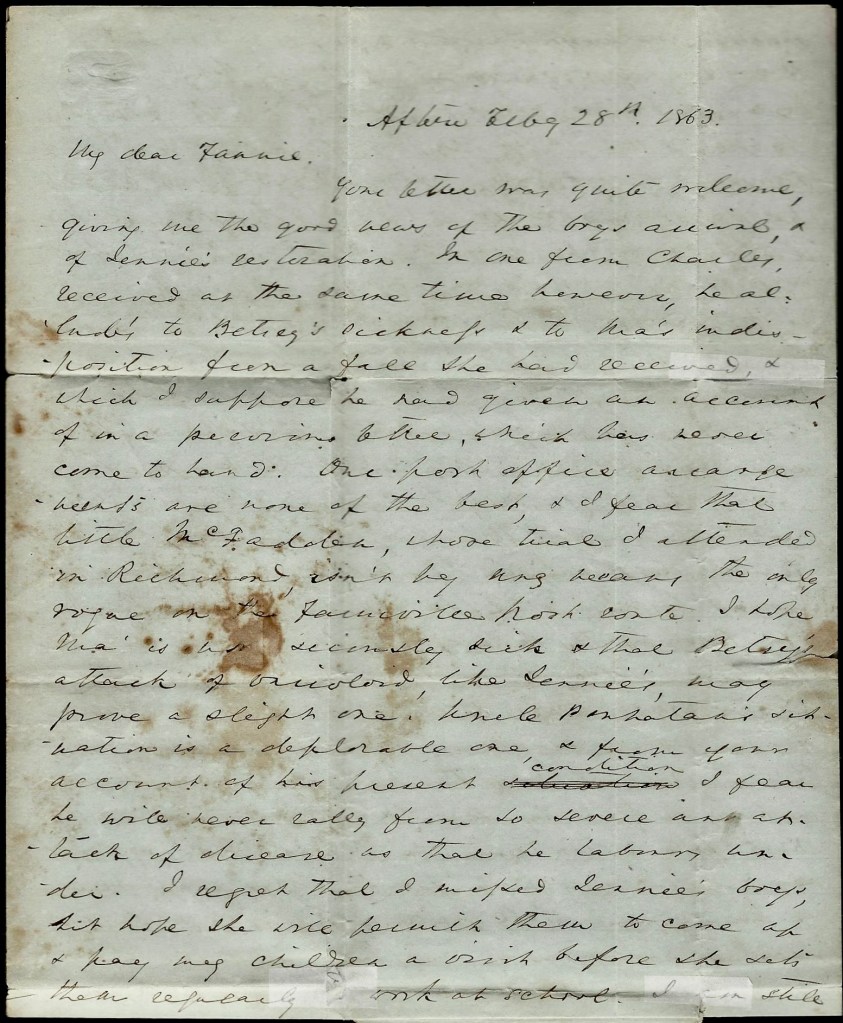 Afton Feby 28th. 1863.
My dear Fannie.
Your letter was quite welcome,
giving me the good news of the boys arrival, &
of Jennie's restoration. In one from Charles,
received at the same time however, he al:
lude's to Betsey's sickness & to Ma's indis-
position from a fall she had received, &
which I suppose he had given an account
of in a previous letter, which has never
come to hand. Our post office arrange
ments are none of the best, & I fear that
little McFadden, whose trial I attended
in Richmond, isn't by any means the only
rogue on the Farmville route. I hope
Ma is not seriously sick & that Betsey's
attack of varioloid, like Jennie's, may
prove a slight one. Uncle Powhatan's sit-
uation is a deplorable one, & from your
account of his present situation condition I fear
he will never rally from so severe an at-
tack of disease as that he labours un-
der. I regret that I missed Jennie's boys,
but hope she will permit them to come up
& pay my children a visit before she sets
them regularly work at school. I am still